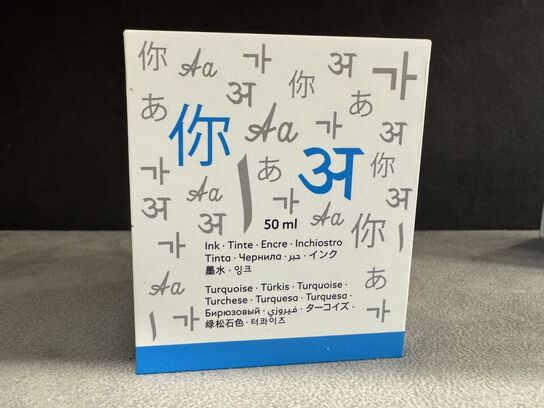 你 Aa 가 अ 가
अ あ
あ 你 Aa 가 अ
가 ا あ अ 你
अ Aa Aa अ 你 ا
가 50 ml
Ink · Tinte · Encre · Inchiostro
Tinta · Чернила · حبر · インク
墨水 · 잉크
Aa 가
Turquoise · Türkis · Turquoise ·
Turchese · Turquesa · Turquesa ·
Бирюзовый · فيروزي · ターコイズ ·
绿松石色 · 터콰이즈
ا 가 अ あ